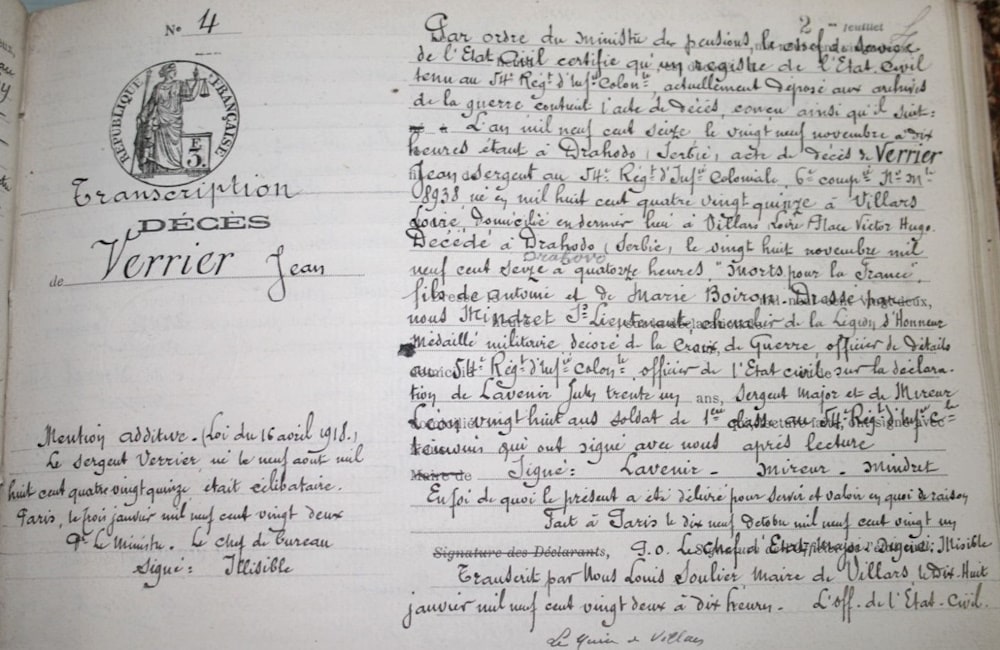 N° 4
RÉPUBLIQUE FRANÇAISE
E
3.
Transcription
DÉCÈS
de Verrier Jean
Mention additive. (Loi du 16 avril 1918.)
Le sergent Verrier, né le neuf aout mil
huit cent quatre vingt quinze était célibataire.
Paris, le trois janvier mil neuf cent vingt deux
Pr. Le Ministre. Le chef de bureau
signé: Illisible
2 feuillet
Par ordre du ministre des pensions, le chef de service
de l'Etat Civil certifie qu'un registre de l'Etat-Civil
tenu au 54e Régt d'Infie Colonle, actuellement déposé aux archives
de la guerre contient l'acte de décès, concu ainsi qu'il suit:
L'an mil neuf cent seize le vingt neuf novembre à dix
heures étant à Drahodo, Serbie, acte de décès de Verrier
Jean sergent au 54e Régt d'Infie Coloniale, 6e compie No Mle
8938 né en mil huit cent quatre vingt quinze à Villars
Loire, domicilié en dernier lieu à Villars, Loire, Place Victor Hugo.
Décédé à Drahodo, Serbie, le vingt huit novembre mil
Drabovo
neuf cent seize à quatorze heures "morts pour la France"
fils de Antoine et de Marie Boiron Dressé par
nous Mindret Ss Lieutenant, chevalier de la Légion d'Honneur
Médaillé militaire, décoré de la Croix, de Guerre, officier de détails
au 54e Régt d'Infie Colonle, officier de l'Etat civil sur la déclara-
tion de Lavenir trente un ans, sergent Major et de Mireur
Léon vingt huit ans soldat de 1ere classe au 54e Régt d'Infie Cle
témoins qui ont signé avec nous après lecture
Maire de Signé: Lavenir - Mireur - Mindret
En foi de quoi le présent a été délivré pour servir et valoir en quoi de raison
Fait à Paris le dix neuf octobre mil neuf cent vingt un
Signature des Déclarants, P.O. Le chef d'Etat-Major signé: Illisible
Transcrit par Nous Louis Soulier, Maire de Villars, le Dix-Huit
janvier mil neuf cent vingt deux à dix heures. L'off. de l'Etat-Civil.
de Villars